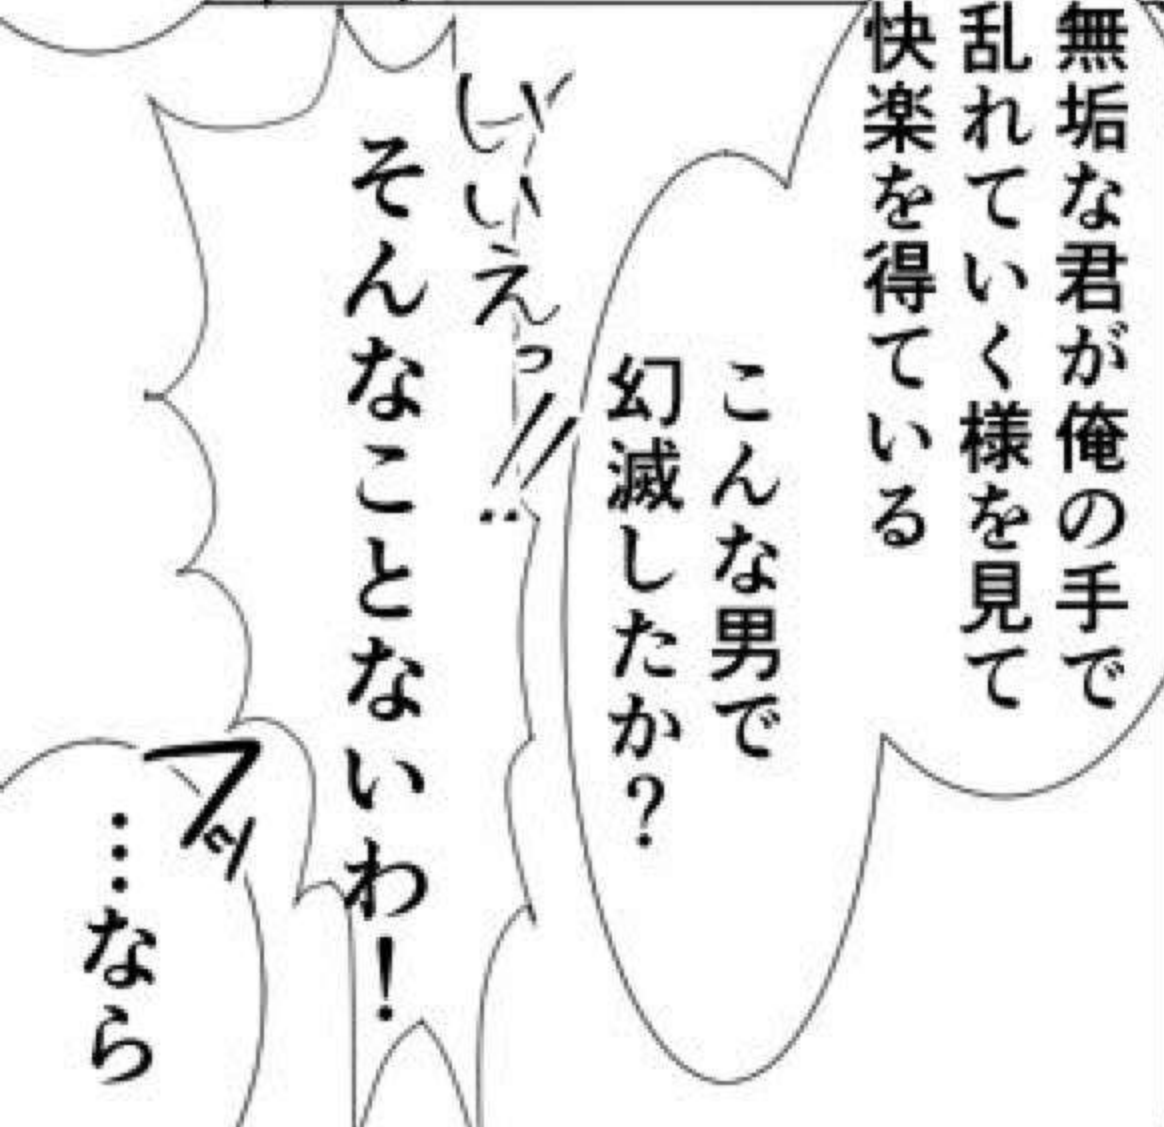 無垢な君が俺の手で
乱れていく様を見て
快楽を得ている
こんな男で
幻滅したか？
いいえっ!!
そんなことないわ！
フッ
…なら